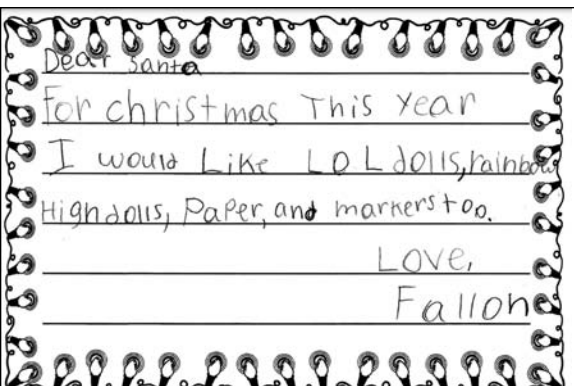 Dear Santa
For christmas This year
I would Like LOL dolls, rainbow
High dolls, Paper, and markers too.
Love,
Fallon